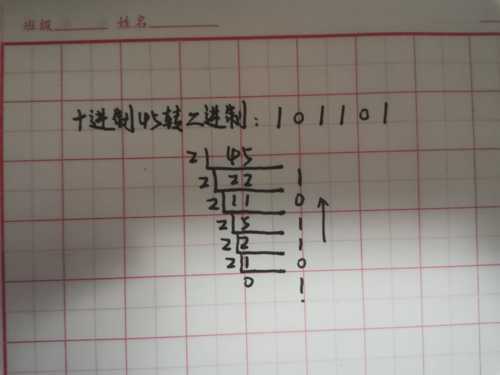 班级 姓名
十进制45转二进制: 1 0 1 1 0 1
2 45
2 22 1
2 11 0
2 5 1
2 2 1
2 1 0
0 1